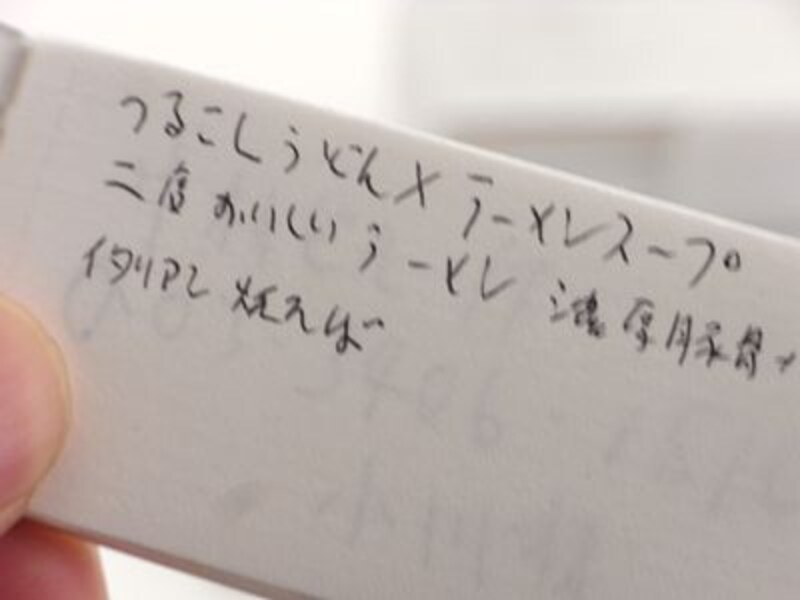 つるこしうどん×ラーメンスープ
二度おいしいラーメン 濃厚豚骨
イタリアン焼そば